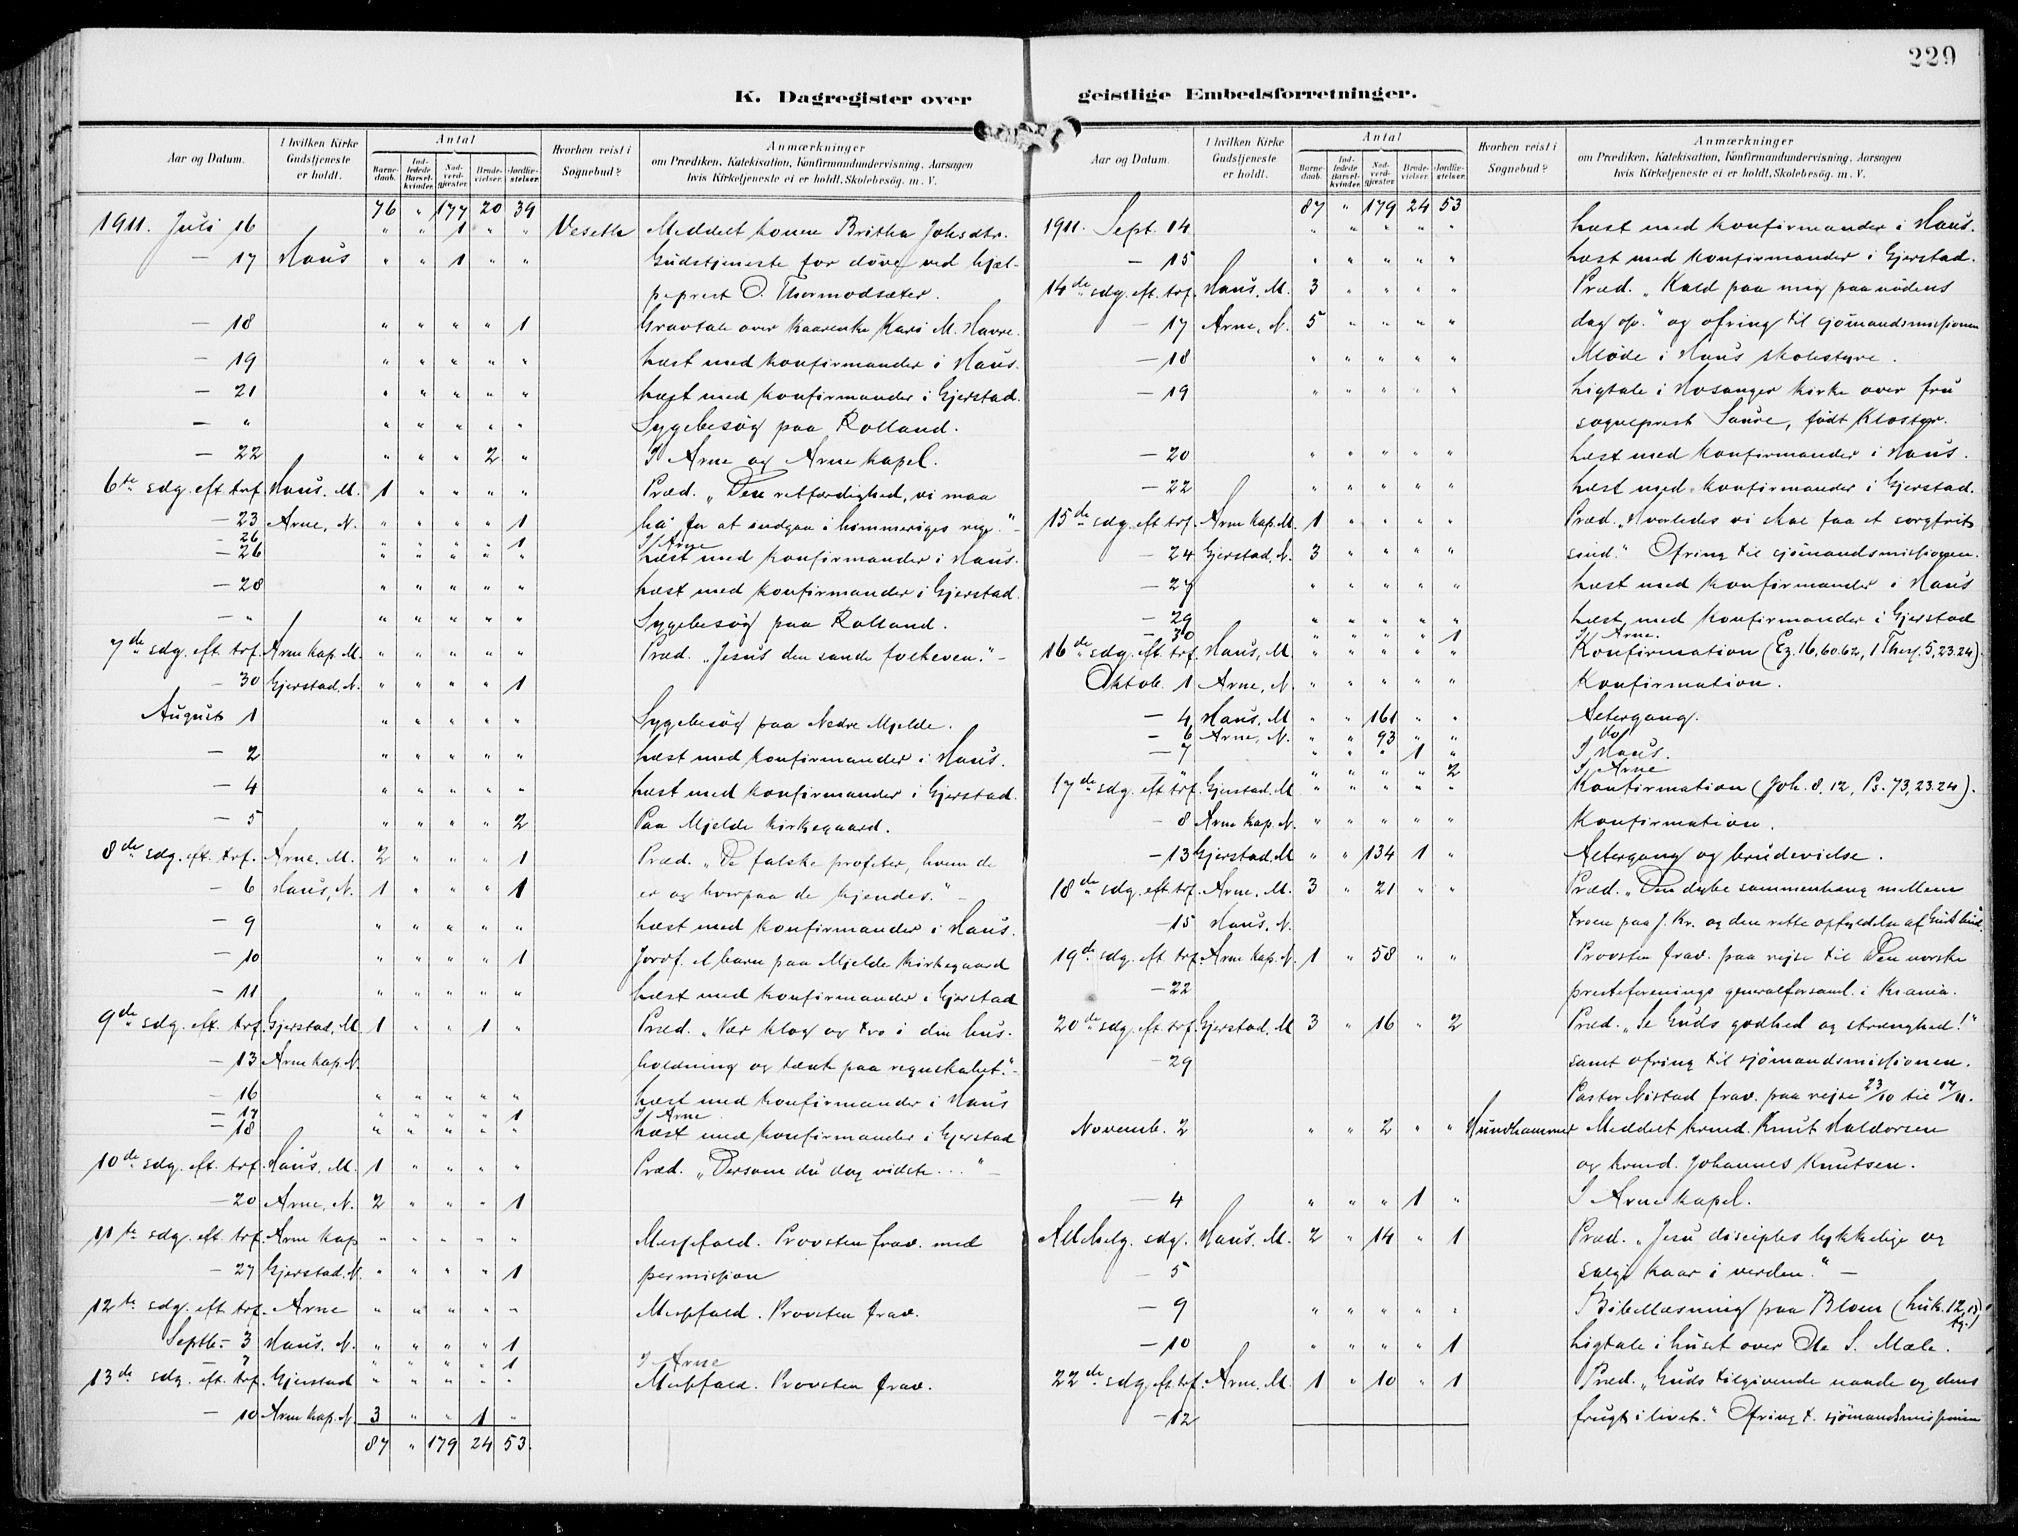 229
K. Dagregister over geistlige Embedsforretninger.
Aar og Datum. I hvilken Kirke Gudstjeneste er holdt. Antal Barnedaab. Indledede Barselkvinder. Nadverdgjester. Brudevielser. Jordfæstelser. Hvorhen reist i Sognebud? Anmærkninger om Prædiken, Katekisation, Konfirmandundervisning, Aarsagen hvis Kirketjeneste ei er holdt, Skolebesøg. m. V.
76 " 177 20 39
1911. Juli 16 " " 1 " " Vesetle Meddelt konen Britha Johsdtr.
— 17 Haus " " 1 " " Gudstjeneste for döve ved hjæl-
peprest O. Thormodsæter.
— 18 " " " " 1 Gravtale over kaarenke Kari M. Havre.
— 19 " " " " " Læst med konfirmander i Haus.
— 21 " " " " " Læst med konfirmander i Gjerstad.
— " " " " " " Sygebesög paa Rolland.
— 22 " " " 2 " I Arne og Arne kapel.
6te sdg. eft. trf. Haus. M. 1 " " " " Præd. „Den retfærdighed, vi maa
— 23 Arne, N. " " " " 1 ha for at indgaa i himmeriges rige." –
— 26 " " " " 1 I Arne
— 26 " " " " " Læst med konfirmander i Haus.
— 28 " " " " " Læst med konfirmander i Gjerstad.
— " " " " " " Sygebesög paa Rolland.
7de sdg. eft. trf. Arne kap. M. " " " " " Præd. „Jesus den sande folkeven." –
— 30 Gjerstad. N. " " " " 1
August 1 " " " " " Sygebesög paa Nedre Mjelde.
— 2 " " " " " Læst med konfirmander i Haus.
— 4 " " " " " Læst med konfirmander i Gjerstad.
— 5 " " " " 2 Paa Mjelde kirkegaard.
8de sdg. eft. trf. Arne. M. 2 " " " 1 Præd. „De falske profeter, hvem de
— 6 Haus, N. 1 " " " 1 er og hvorpaa de kjendes." –
— 9 " " " " " Læst med konfirmander i Haus.
— 10 " " " " 1 Jordf. et barn paa Mjelde kirkegaard
— 11 " " " " " Læst med konfirmander i Gjerstad
9de sdg. eft. trf. Gjerstad, M. 1 " " 1 " Præd. „Vær klog og tro i din hus-
— 13 Arne kap. N. holdning og tænk paa regnskabet." –
— 16 " " " " " Læst med konfirmander i Haus
— 17 " " " " 1 I Arne
— 18 " " " " " Læst med konfirmander i Gjerstad
10de sdg. eft. trf. Haus, M. 1 " " " " Præd. „Dersom du dog vidste ..." –
— 20 Arne, N. 2 " " " 1
11te sdg. eft. trf. Arne kap " " " " " Messefald. Provsten frav. med
— 27 Gjerstad. N. " " " " 1 permission
12te sdg. eft. trf. Arne " " " " " Messfald. Provsten frav.
Septb. – 3 Haus. N. " " " " 1
— 7 " " " " 1 I Arne
13de sdg. eft. trf. Gjerstad " " " " " Messfald. Provsten frav.
— 10 Arne kap. N. 3 " " 1 "
87 " 179 24 53.
Aar og Datum. I hvilken Kirke Gudstjeneste er holdt. Antal Barnedaab. Indledede Barselkvinder. Nadverdgjester. Brudevielser. Jordfæstelser. Hvorhen reist i Sognebud? Anmærkninger om Prædiken, Katekisation, Konfirmandundervisning, Aarsagen hvis Kirketjeneste ei er holdt, Skolebesøg. m. V.
87 " 179 24 53
1911. Sept. 14 " " " " " Læst med konfirmander i Haus.
— 15 " " " " " Læst med konfirmander i Gjerstad.
14de sdg. eft. trf. Haus. M. 3 " " " " Præd. „Kald paa mig paa nödens
— 17 Arne, N. 5 " " " " dag osv." og ofring til sjömandsmissionen
— 18 " " " " " Möde i Haus skolestyre.
— 19 " " " " " Ligtale i Hosanger kirke over fru
sogneprest Saure, födt Kloster.
— 20 " " " " " Læst med konfirmander i Haus.
— 22 " " " " " Læst med konfirmander i Gjerstad.
15de sdg. eft. trf. Arne kap. M. 1 " " " " Præd. „Hvorledes vi skal faa et sorgfrit
— 24 Gjerstad, N. 3 " " " " sind." Ofring til sjömandsmissionen.
— 27 " " " " " Læst med konfirmander i Haus
— 29 " " " " " Læst med konfirmander i Gjerstad
— 30 " " " " 1 I Arne.
16de sdg. eft. trf. Haus, M. " " " " " Konfirmation (Ez. 16, 60.62, 1 Thess. 5, 23.24).
Oktob. 1 Arne, N. " " " " " Konfirmation.
— 4 Haus. M " " 161 " " Altergang.
— 6 Arne, N. " " 93 " " do
— 7 " " " 1 " I Haus.
" " " " 2 I Arne
17de sdg. eft. trf. Gjerstad. M " " " " " Konfirmation (Joh. 8, 12, Ps. 73, 23.24).
— 8 Arne kap. N. " " " " " Konfirmation.
— 13 Gjerstad. M " " 134 1 " Altergang og brudevielse.
18de sdg. eft. trf. Arne, M. 3 " 21 " " Præd. „Den dybe sammenhæng mellem
— 15 Haus. N. troen paa J. Kr. og den rette opfyldelse af Guds bud.
19de sdg. eft. trf. Arne kap. N. 1 " 58 " " Provsten frav. paa rejse til Den norske
— 22 presteforenings generalforsaml. i Krania.
20de sdg. eft. trf. Gjerstad. M 3 " 16 " 2 Præd. „Se Guds godhed og strenghed!"
— 29 samt ofring til sjömandsmissionen.
Pastor Nistad frav. paa rejse 23/10 til 17/11.
Novemb. 2 " " 2 " " Hundhammer Meddelt krmd. Knut Haldorsen
og krmd. Johannes Knutsen.
— 4 " " " 1 " I Arne kapel.
Allehelg. sdg. Haus. M. 2 " 14 " 1 Præd. „Jesu disciples lykkelige og
— 5 salige kaar i verden." –
— 9 " " " " " Bibellæsning paa Blom (Luk. 12,
— 10 " " " " 1 Ligtale i huset over Ole S. Mæle.
22de sdg. eft. trf. Arne, M. 1 " 10 " 1 Præd. „Guds tilgivende naade og dens
— 12 frugt i livet." Ofring t. sjömandsmissionen